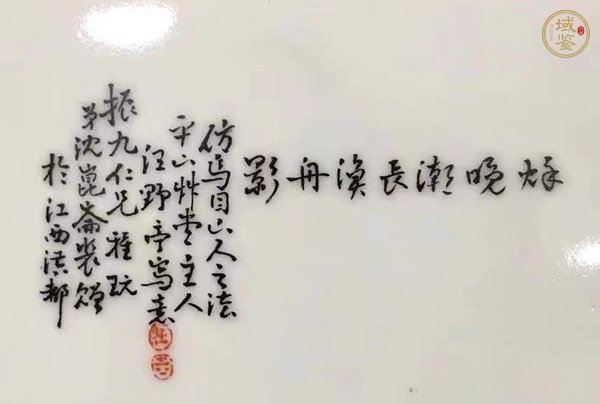 秌晚潮長漁舟影
仿馬目山人之法
平山艸堂主人
汪野亭寫意
振九仁兄雅玩
弟沈崑崙裝贈
於江西洪都
域鉴